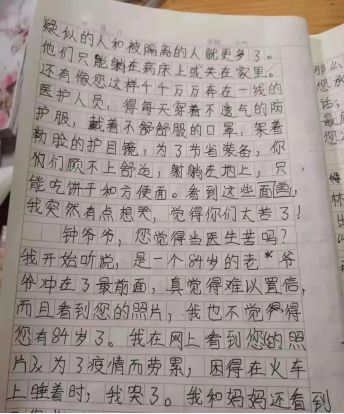 疑似的人和被隔离的人就更多了。
他们只能躺在病床上或关在家里。
还有像您这样千千万万奔在一线的
医护人员，得每天穿着不透气的防
护服，戴着不舒舒服的口罩，架着
勒脸的护目镜，为了节省装备，你
们们顾不上舒适，躺躺在地上，只
能吃饼干和方便面。看到这些画面，
我突然有点想哭，觉得你们太苦了！
钟爷爷，您觉得当医生苦吗？
我开始听说，是一个84岁的老爷
爷冲在了最前面，真觉得难以置信，
而且看到您的照片，我也不觉得
您有84岁了。我在网上看到您的照
片为了疫情而劳累，困得在火车
上睡着时，我哭了。我和妈妈还看到
那么
话，
最
您